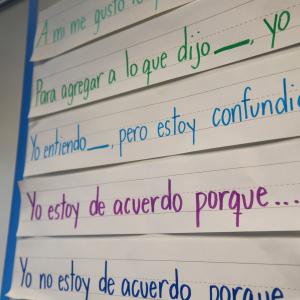 A mi me gusto lo
Para agregar a lo que dijo___, yo
Yo entiendo___, pero estoy confundi
Yo estoy de acuerdo porque...
Yo no estoy de acuerdo porque